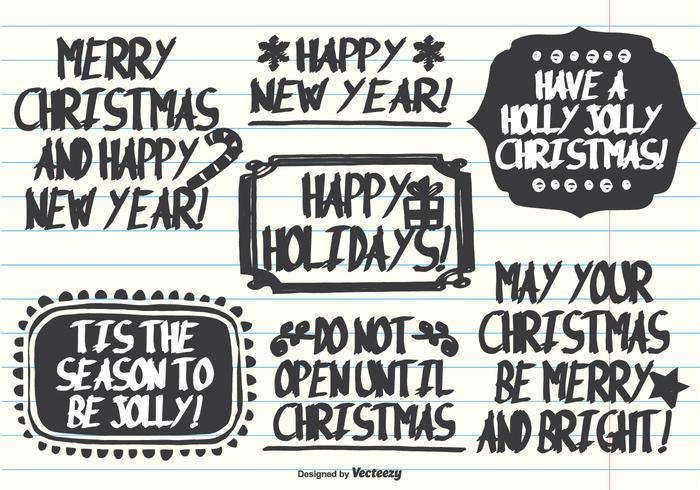 MERRY
CHRISTMAS
AND HAPPY
NEW YEAR!
HAPPY
NEW YEAR!
HAVE A
HOLLY JOLLY
CHRISTMAS!
HAPPY
HOLIDAYS!
TIS THE
SEASON TO
BE JOLLY!
DO NOT
OPEN UNTIL
CHRISTMAS
MAY YOUR
CHRISTMAS
BE MERRY
AND BRIGHT!
Designed by Vecteezy